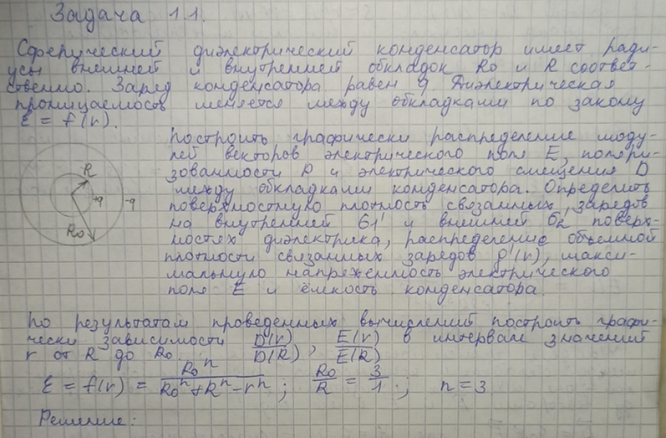 Задача 1.1.
Сферический диэлектрический конденсатор имеет ради-
усы внешней и внутренней обкладок R₀ и R соответ-
ственно. Заряд конденсатора равен q Диэлектрическая
проницаемость меняется между обкладками по закону
Ɛ = f(r).
построить графически распределение моду-
лей векторов электрического поля E, поляри-
зованности P и электрического смещения D
между обкладками конденсатора. Определить
поверхностную плотность связанных зарядов
на внутренней σ₁' и внешней σ₂' поверх-
ностях диэлектрика, распределение объемной
плотности связанных зарядов ρ'(r), макси-
мальную напряженность электрического
поля E и ёмкость конденсатора.
R
+q
-q
R₀
по результатам проведенных вычислений построить графи-
чески зависимости D(r)/D(R), E(r)/E(R) в интервале значений
r от R до R₀.
Ɛ = f(r) = R₀ⁿ/(R₀ⁿ+Rⁿ-rⁿ); R₀/R = 3/1; n = 3
Решение: